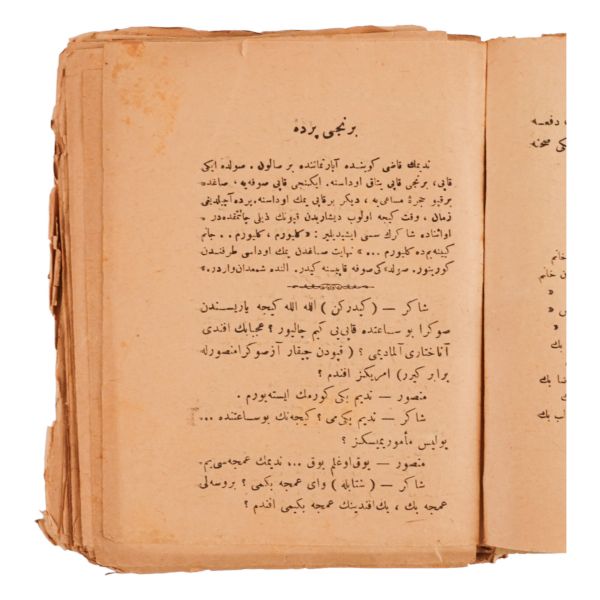 برنجی پرده
ندیمك قاضی كوینده آپارتماننده بر صالون . صولده ایكی
قاپی، برنجی قاپی یتاق اوداسنه. ایكنجی قاپی صوفه‌یه ، صاغده
برقپو حجرۀ مساعی‌یه ، دیكر برقاپی یمك اوداسنه. پرده آچیلدیغی
زمان ، وقت كیجه اولوب دیشاریدن قپونك ذیلی چالنمقده‌در .
اواثناده شاكرك سسی ایشیدیلیر : «كلیورم ، كلیورم . . جانم
كیینه‌یم‌ده كلیورم ... » نهایت صاغدن یمك اوداسی طرفندن
كورینور. صولده‌كی صوفه قاپیسنه كیدر. النده شمعدان واردر.»
شاكر — ( كیدركن ) الله الله كیجه یاریسندن
صوكرا بو ساعتده قاپی‌یی كیم چالیور ؟ عجبابك افندی
آناختاری آلمادیمی ؟ ( قپودن چیقار آزصوكرا منصورله
برابر كیرر) امریكز افندم ؟
منصور — ندیم بكی كورمك ایسته‌یورم .
شاكر — ندیم بكی‌می ؟ كیجه‌نك بوساعتنده ...
پولیس مأموریمیسكز ؟
منصور — یوق اوغلم یوق ... ندیمك عمجه‌سی‌یم.
شاكر — ( شتابله ) وای عمجه بكمی ؟ بروسه‌لی
عمجه بك ، بك افندینك عمجه بكمی افندم ؟
دفعه
كی صحنه
خانم
ن خانم
»
س »
»
بك
ضا بك
لب بك